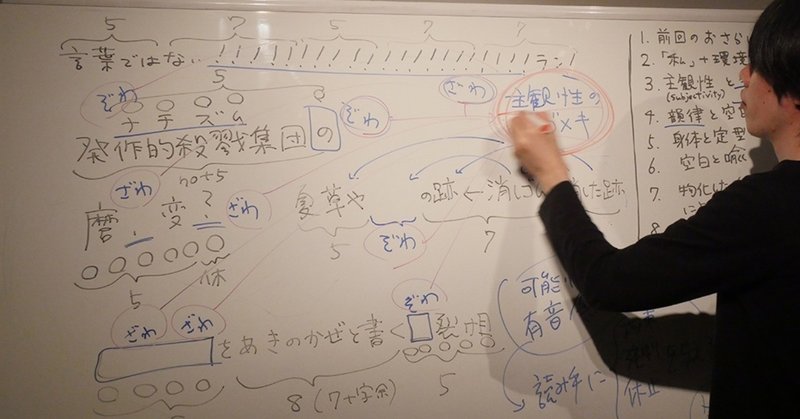 5 7 5 7 7
言葉ではない!!!!!!!!!!!!!!!!!!!!ラン!
5
ぞわ
ナチズム
ぞわ
ざわ
主観性の
メキ
発作的殺戮集団の
ざわ
not 5
磨. 変?.
ざわ
休
5
夏草や
の跡←消
した跡
5
ぞわ
7
ざわ ざわ
ぞわ
をあきのかぜと書く
裂け目
8(7+字余)
5
可能
有音
読み手に
休止
1. 前回のおさらい
2. 「私」+環境
3. 主観性と
(subjectivity)
4. 韻律と空
5. 身体と定型
6. 空白と喩
7. 物化した
8